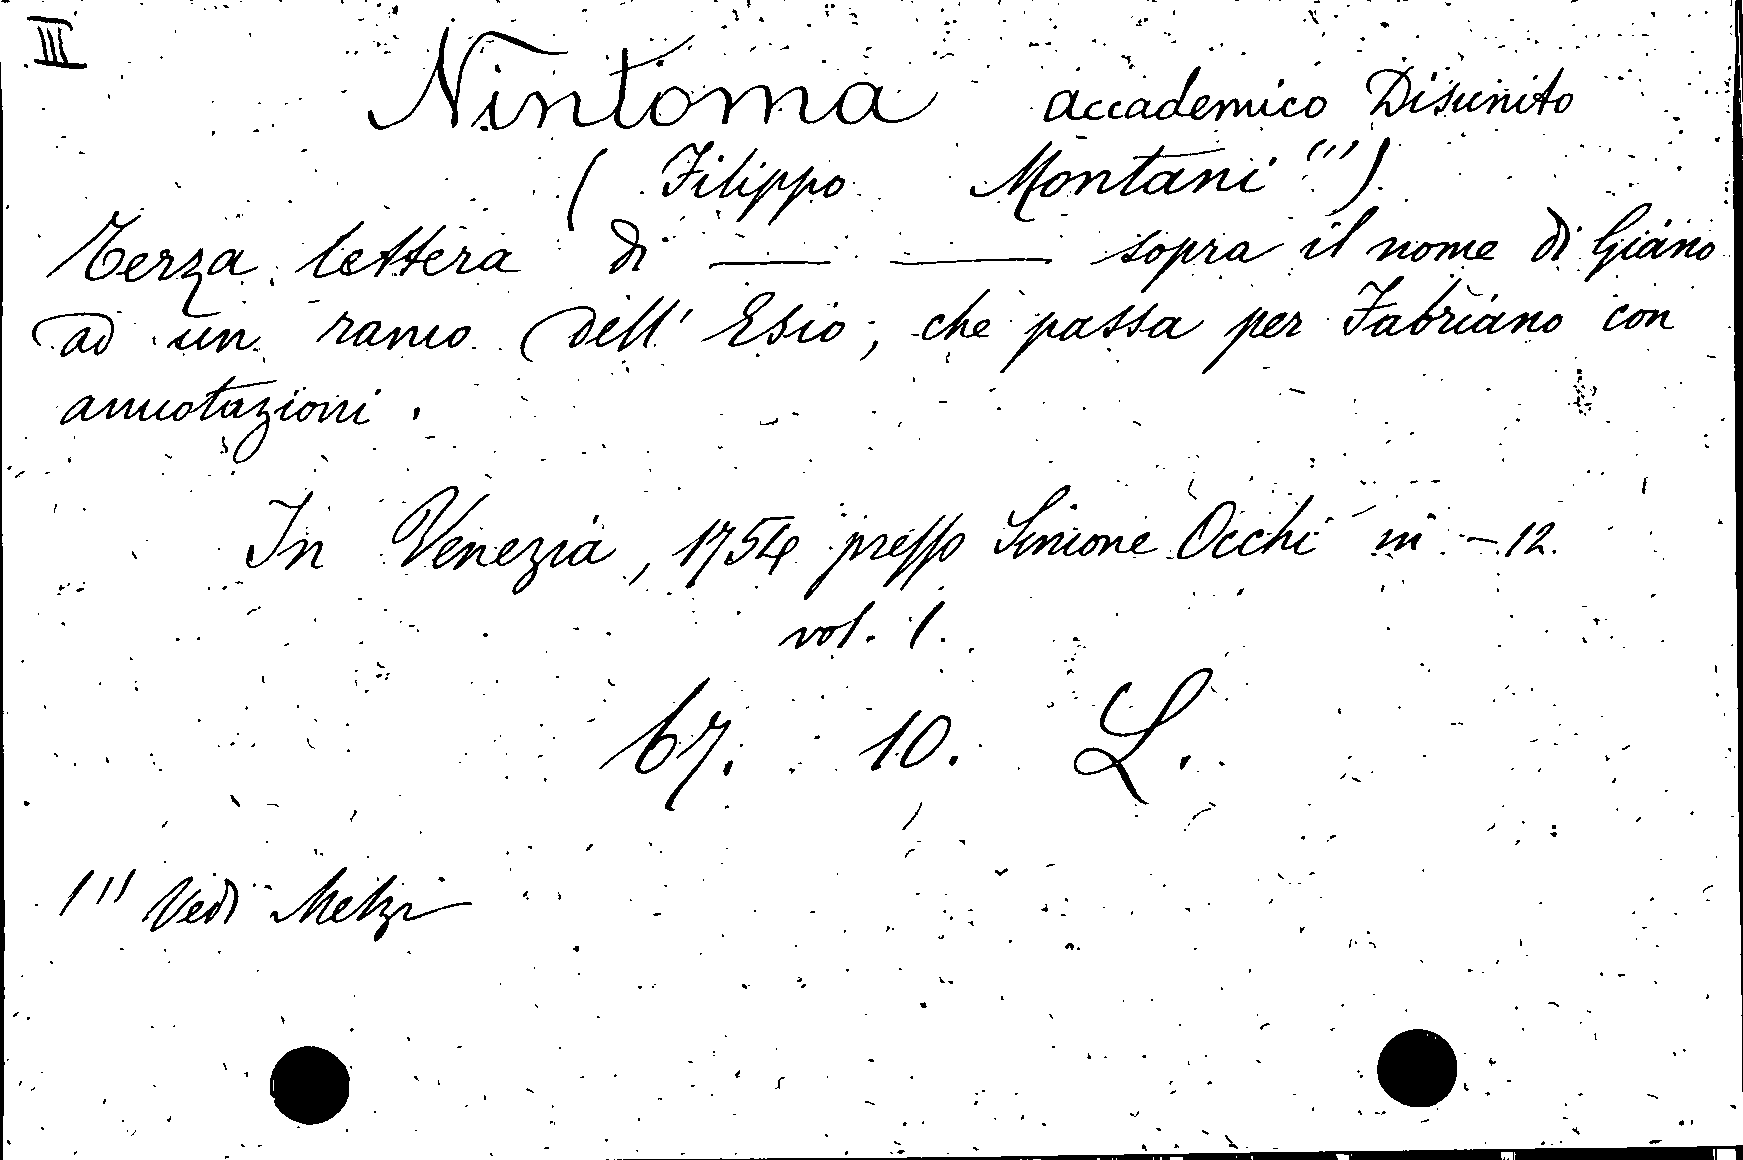 III
Nintoma accademico Disunito
( Filippo Montani (1) )
Terza lettera di —— —— sopra il nome di Giano
ad un ramo dell' Esio, che passa per Fabriano con
annotazioni.
In Venezia, 1754 presso Simone Occhi in - 12.
vol. 1.
67. 10. L.
(1) Vedi Melzi